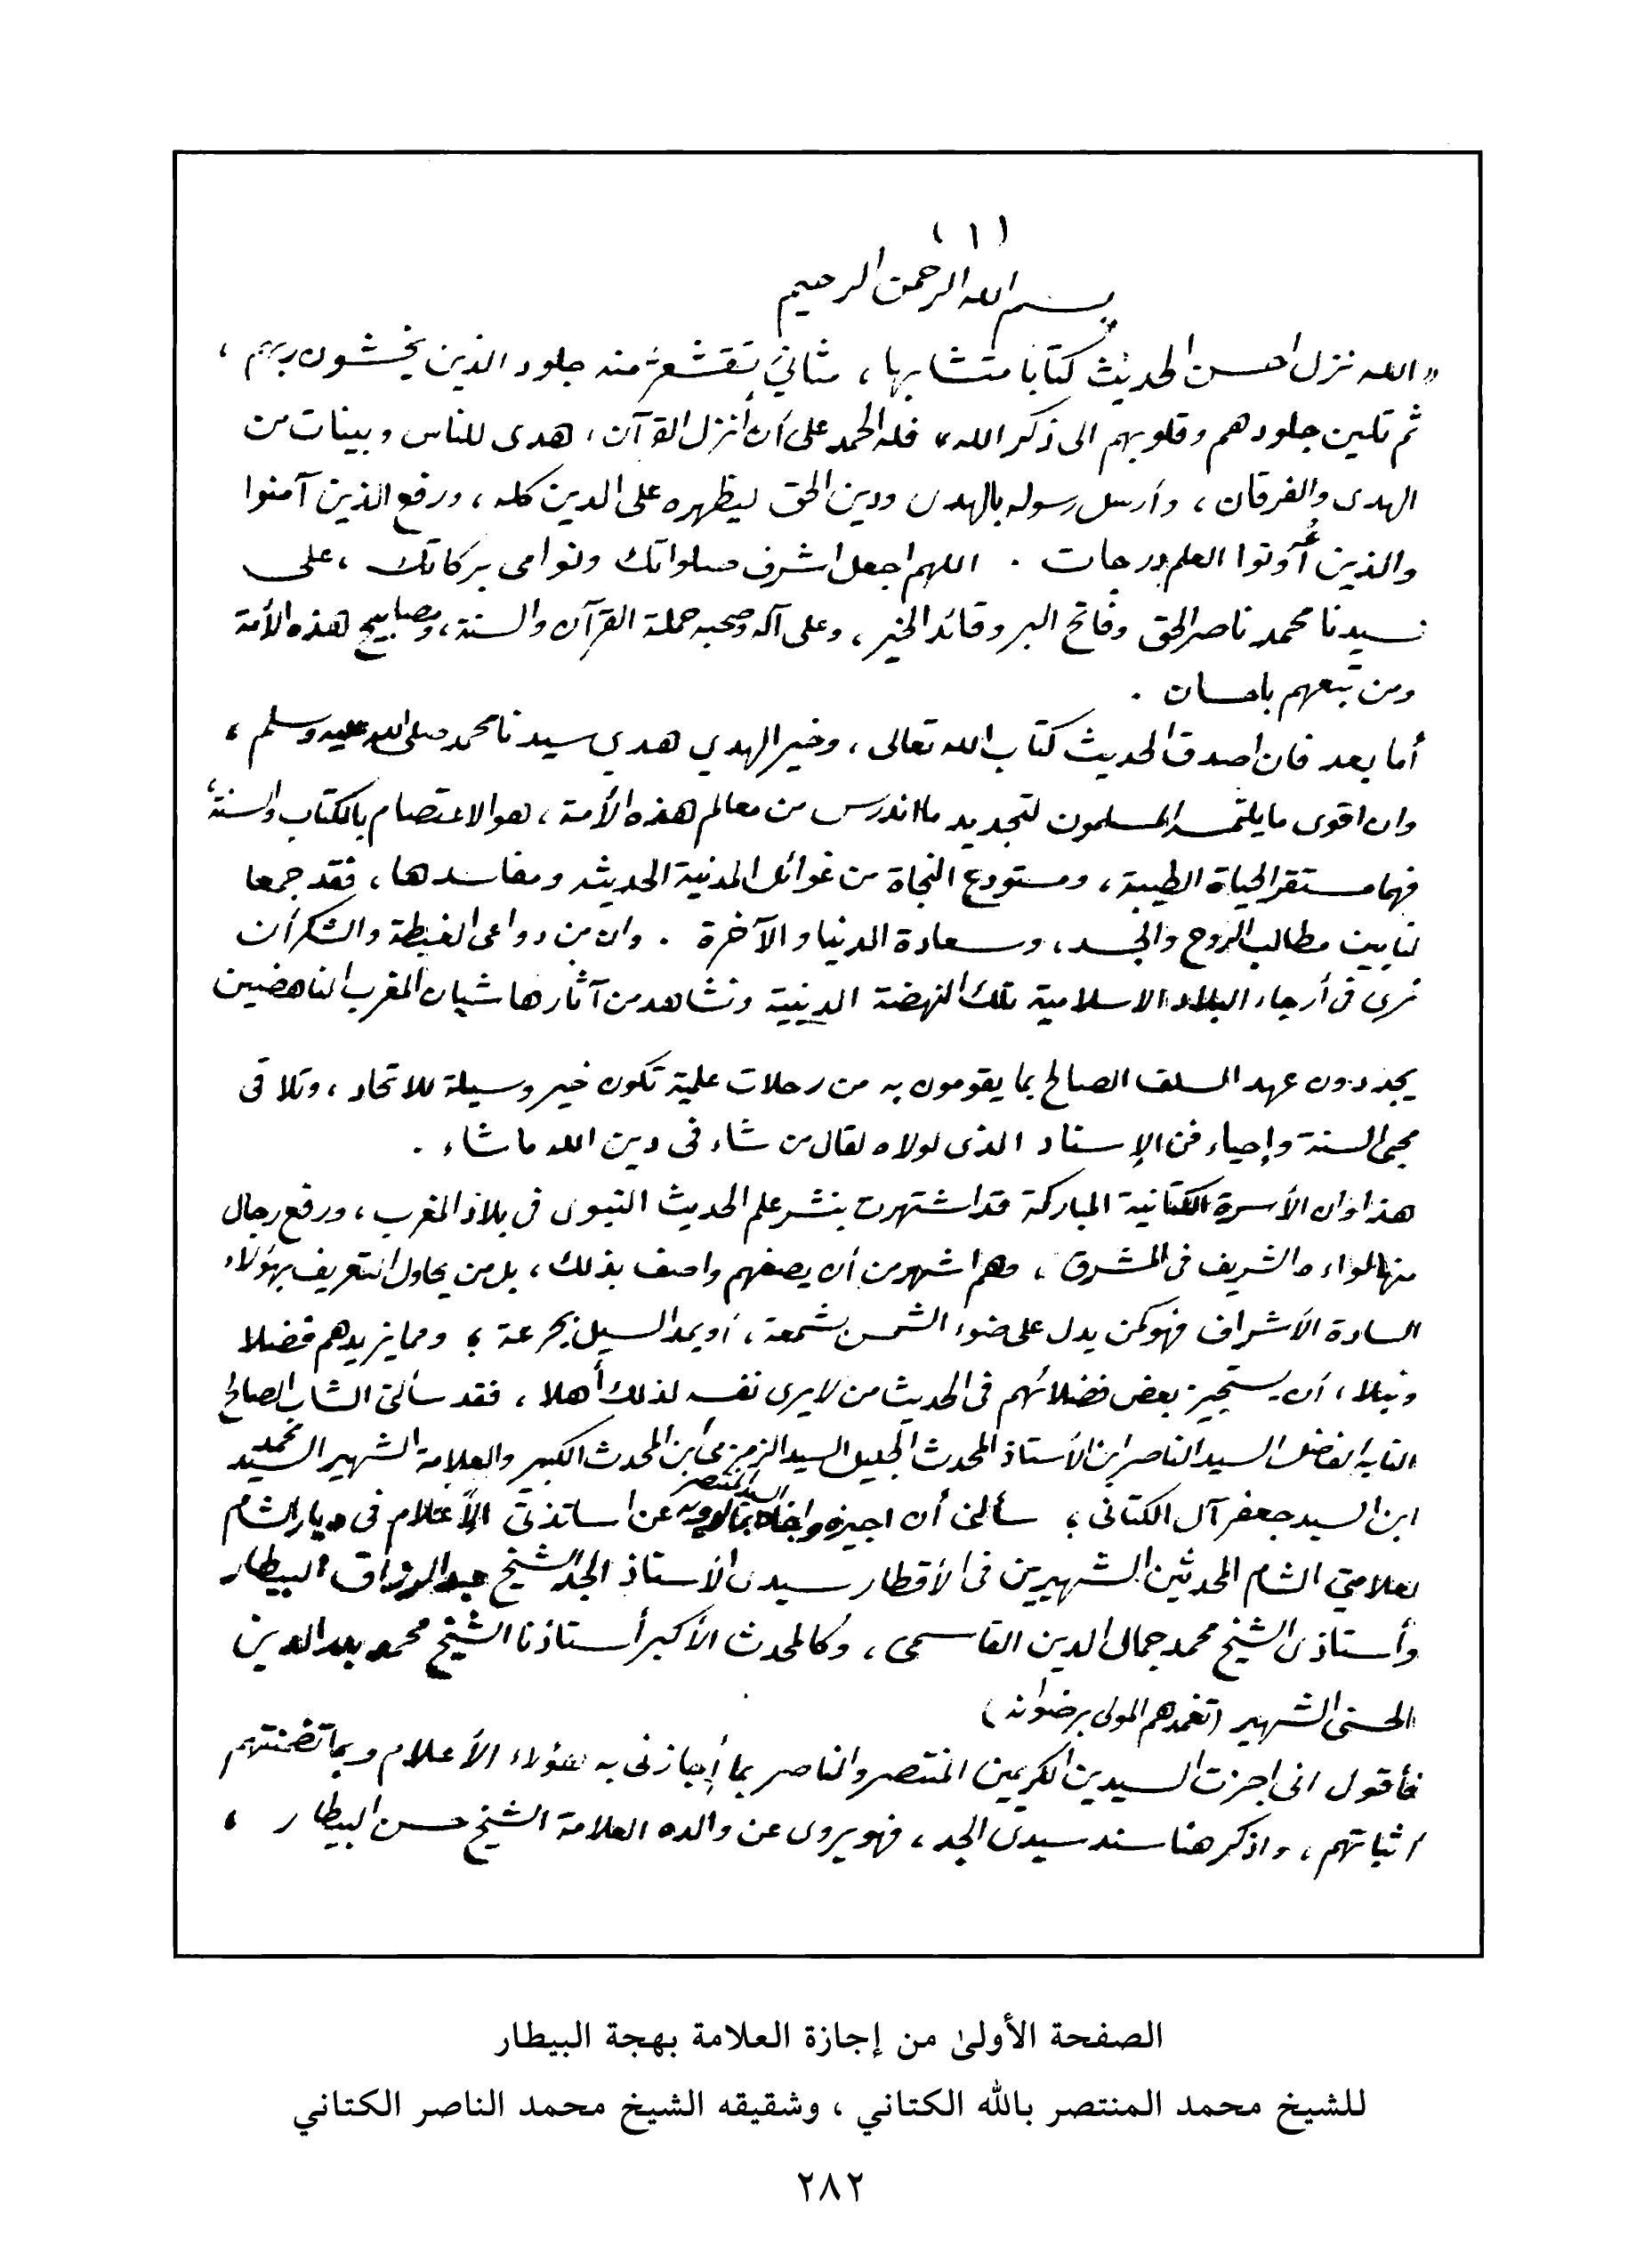 (١)
بسم الله الرحمن الرحيم
«الله نزل احسن الحديث كتابا متشابها ، مثاني تقشعرّ منه جلود الذين يخشون ربهم ،
ثم تلين جلودهم وقلوبهم الى ذكر الله» فله الحمد على أن أنزل القرآن ، هدى للناس وبينات من
الهدى والفرقان ، وأرسل رسوله بالهدى ودين الحق ليظهره على الدين كله ، ورفع الذين آمنوا
والذين أوتوا العلم درجات . اللهم اجعل اشرف صلواتك ونوامى بركاتك ، على
سيدنا محمد ناصر الحق وفاتح البر وقائد الخير ، وعلى آله وصحبه حملة القرآن والسنة ، ومصابيح هذه الأمة
ومن تبعهم باحسان .
أما بعد فان اصدق الحديث كتاب الله تعالى ، وخير الهدي هدي سيدنا محمد صلى الله عليه وسلم ،
وان اقوى ما يلتمسه المسلمون لتجديد ما اندرس من معالم هذه الأمة ، هو الاعتصام بالكتاب والسنة ،
فهما مستقر الحياة الطيبة ، ومستودع النجاة من غوائل المدنية الحديثة ومفاسدها ، فقد جمعا
لنا بين مطالب الروح والجسد ، وسعادة الدنيا والآخرة . وان من دواعى الغبطة والشكر أن
نرى فى أرجاء البلاد الاسلامية تلك النهضة الدينية ونشاهد من آثارها شبان المغرب الناهضين
يجددون عهد السلف الصالح بما يقومون به من رحلات علمية تكون خير وسيلة للاتحاد ، وتلاقى
محبى السنة وإحياء فن الإسناد الذى لولاه لقال من شاء فى دين الله ما شاء .
هذا وان الأسرة الكتانية المباركة قد اشتهرت بنشر علم الحديث النبوى فى بلاد المغرب ، ورفع رجال
منها لواءه الشريف فى المشرق ، وهم اشهر من أن يصفهم واصف بذلك ، بل من يحاول التعريف بهؤلاء
السادة الأشراف فهو كمن يدل على ضوء الشمس بشمعة ، أو يمد السيل بجرعة ؛ ومما يزيدهم فضلا
ونبلا ، أن يستجيز بعض فضلائهم فى الحديث من لا يرى نفسه لذلك أهلا ، فقد سألنى الشاب الصالح
النابه الفاضل السيد الناصر ابن الأستاذ المحدث الجليل السيد الزمزمى ابن المحدث الكبير والعلامة الشهير السيد محمد
ابن السيد جعفر آل الكتانى ؛ سألنى أن اجيزه واخاه السيد المنتصر بما أرويه عن اساتذتى الأعلام فى ديار الشام
لعلامتي الشام المحدثين الشهيرين فى الأقطار سيدى الأستاذ الجد الشيخ عبد الرزاق البيطار
وأستاذى الشيخ محمد جمال الدين القاسمى ، وكالمحدث الأكبر أستاذنا الشيخ محمد بدر الدين
الحسنى الشهير (تغمدهم المولى برضوانه)
فأقول انى اجزت السيدين الكريمين المنتصر والناصر بما أجازنى به هؤلاء الأعلام وبما تضمنته
اثباتهم ، واذكر هنا سند سيدى الجد ، فهو يروى عن والده العلامة الشيخ حسن البيطار ،
الصفحة الأولىٰ من إجازة العلامة بهجة البيطار
للشيخ محمد المنتصر بالله الكتاني ، وشقيقه الشيخ محمد الناصر الكتاني
٢٨٢